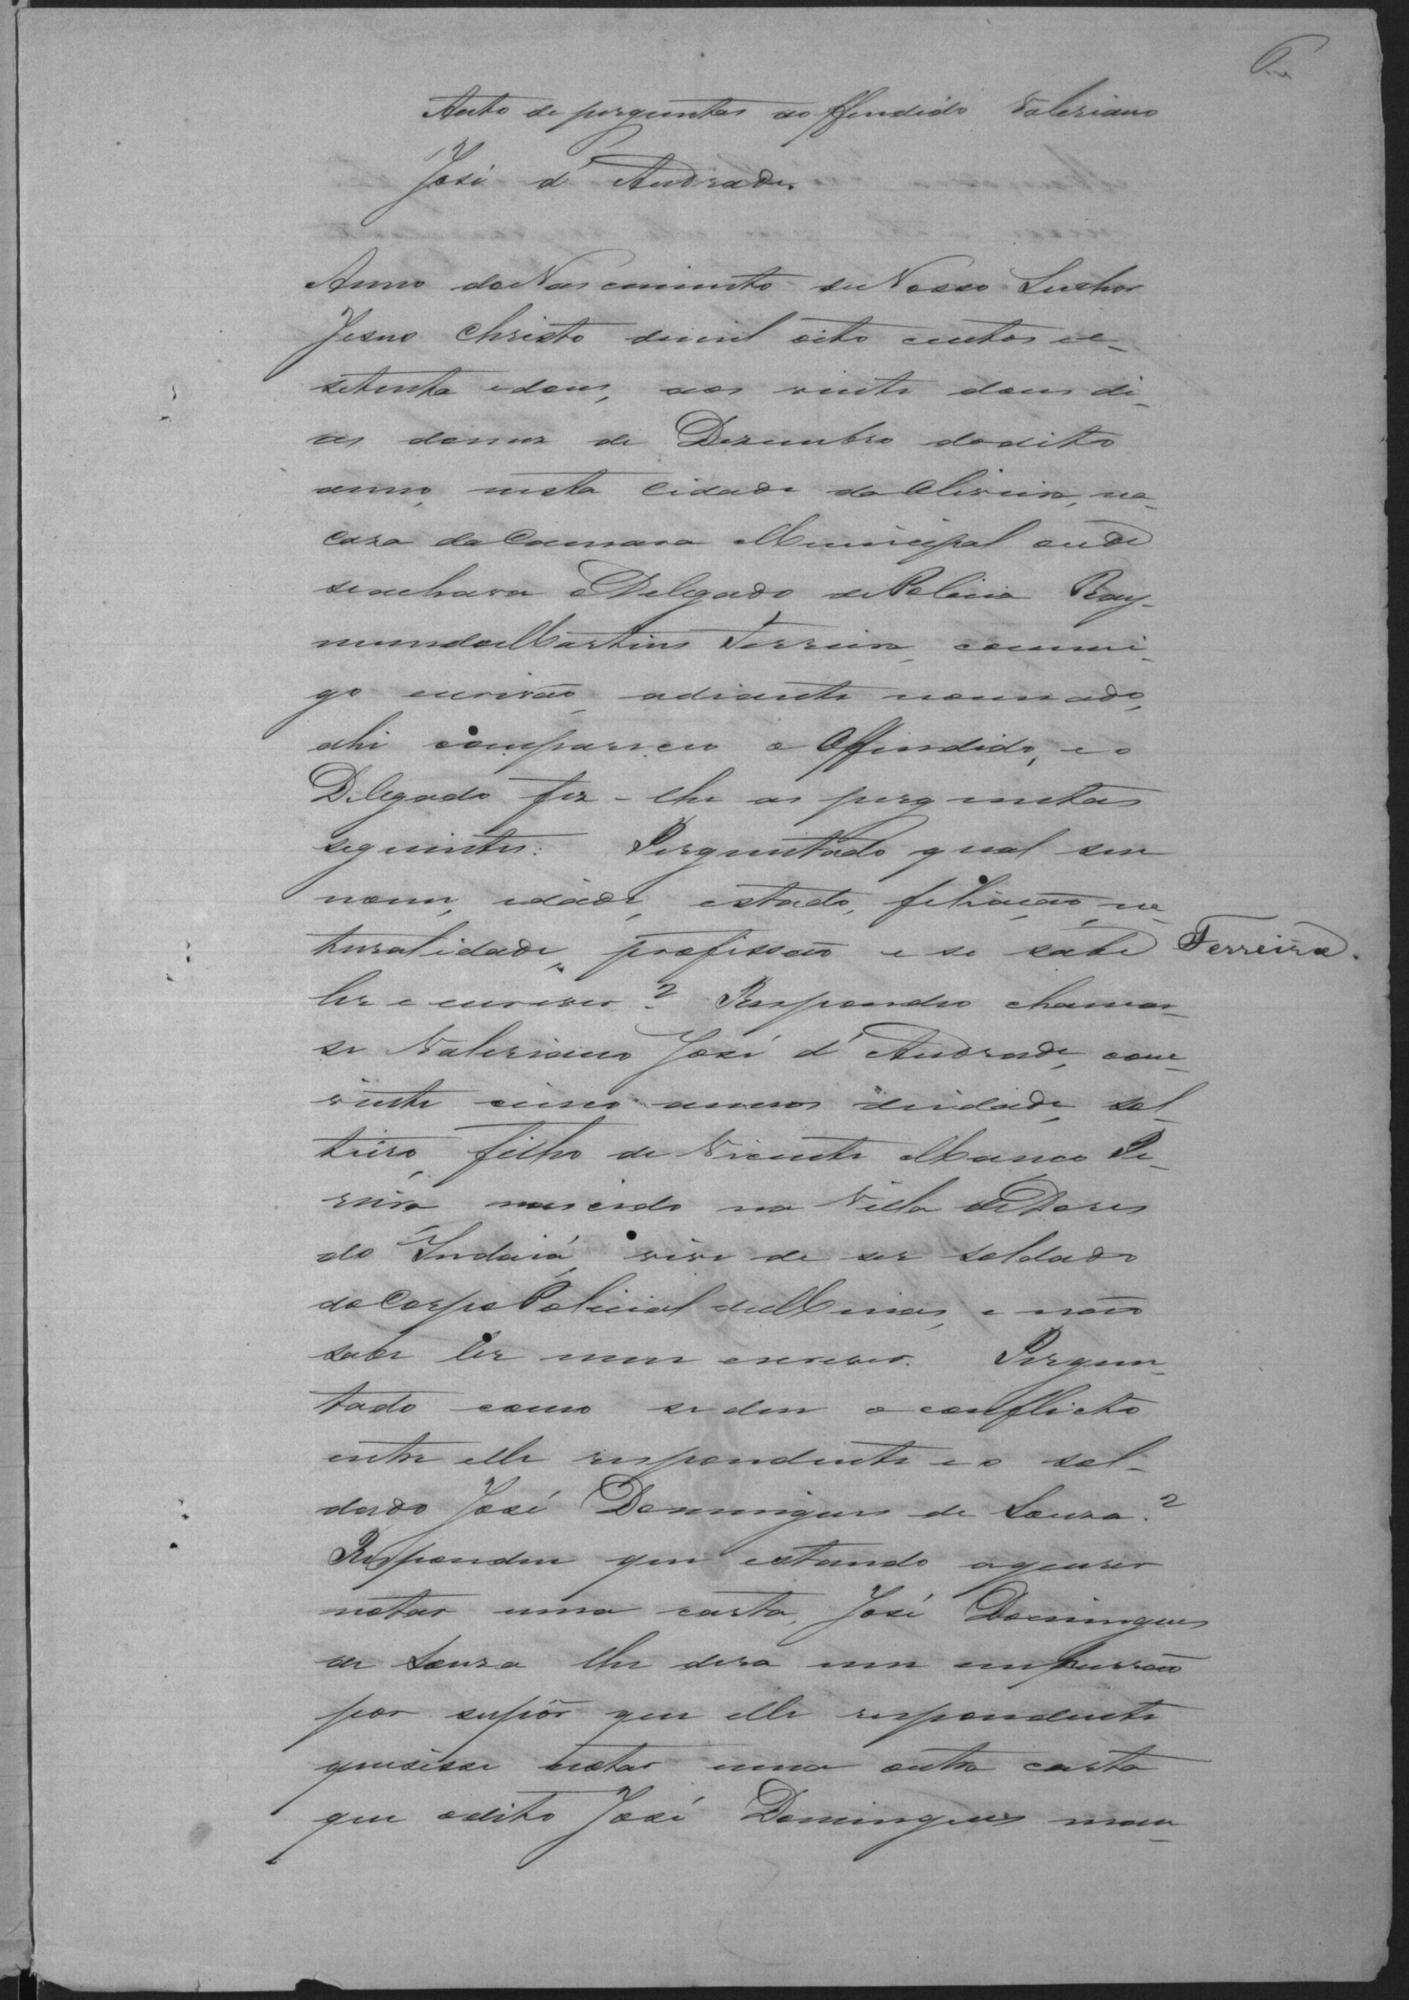 6
Auto de perguntas ao Offendido Valeriano
José d'Andrade.
Anno do Nascimento de Nosso Senhor
Jesus Christo de mil oito centos e
setenta e dous, aos vinte dous di-
as do mez de Dezembro do dito
anno, nesta Cidade da Oliveira, na
caza da Camara Municipal onde
se achava o Delegado de Policia Ray-
mundo Martins Ferreira, commi-
go escrivão adiante nomeado,
ahi compareceu o Offendido, e o
Delegado fez-lhe as perguntas
seguintes: Perguntado qual seu
nome, idade, estado, filiação, na-
turalidade, profissão e se sabe
Ferreira.
ler e escrever? Respondeo chamar-
se Valeriano José d'Andrade, com
vinte cinco annos de idade, sol-
teiro, filho de Vicente Pe-
reira nascido na Villa de Dores
do Indaiá, vive de ser soldado
do Corpo Policial de Minas, e não
sabe ler nem escrever. Pergun-
tado como se deu o conflicto
entre elle respondente e o sol-
dado José Domingues de Souza?
Respondeu que estando a querer
notar uma carta, José Domingues
de Souza lhe dera um empurrão
por supôr que elle respondente
quisesse notar uma outra carta
que o dito José Domingues man-